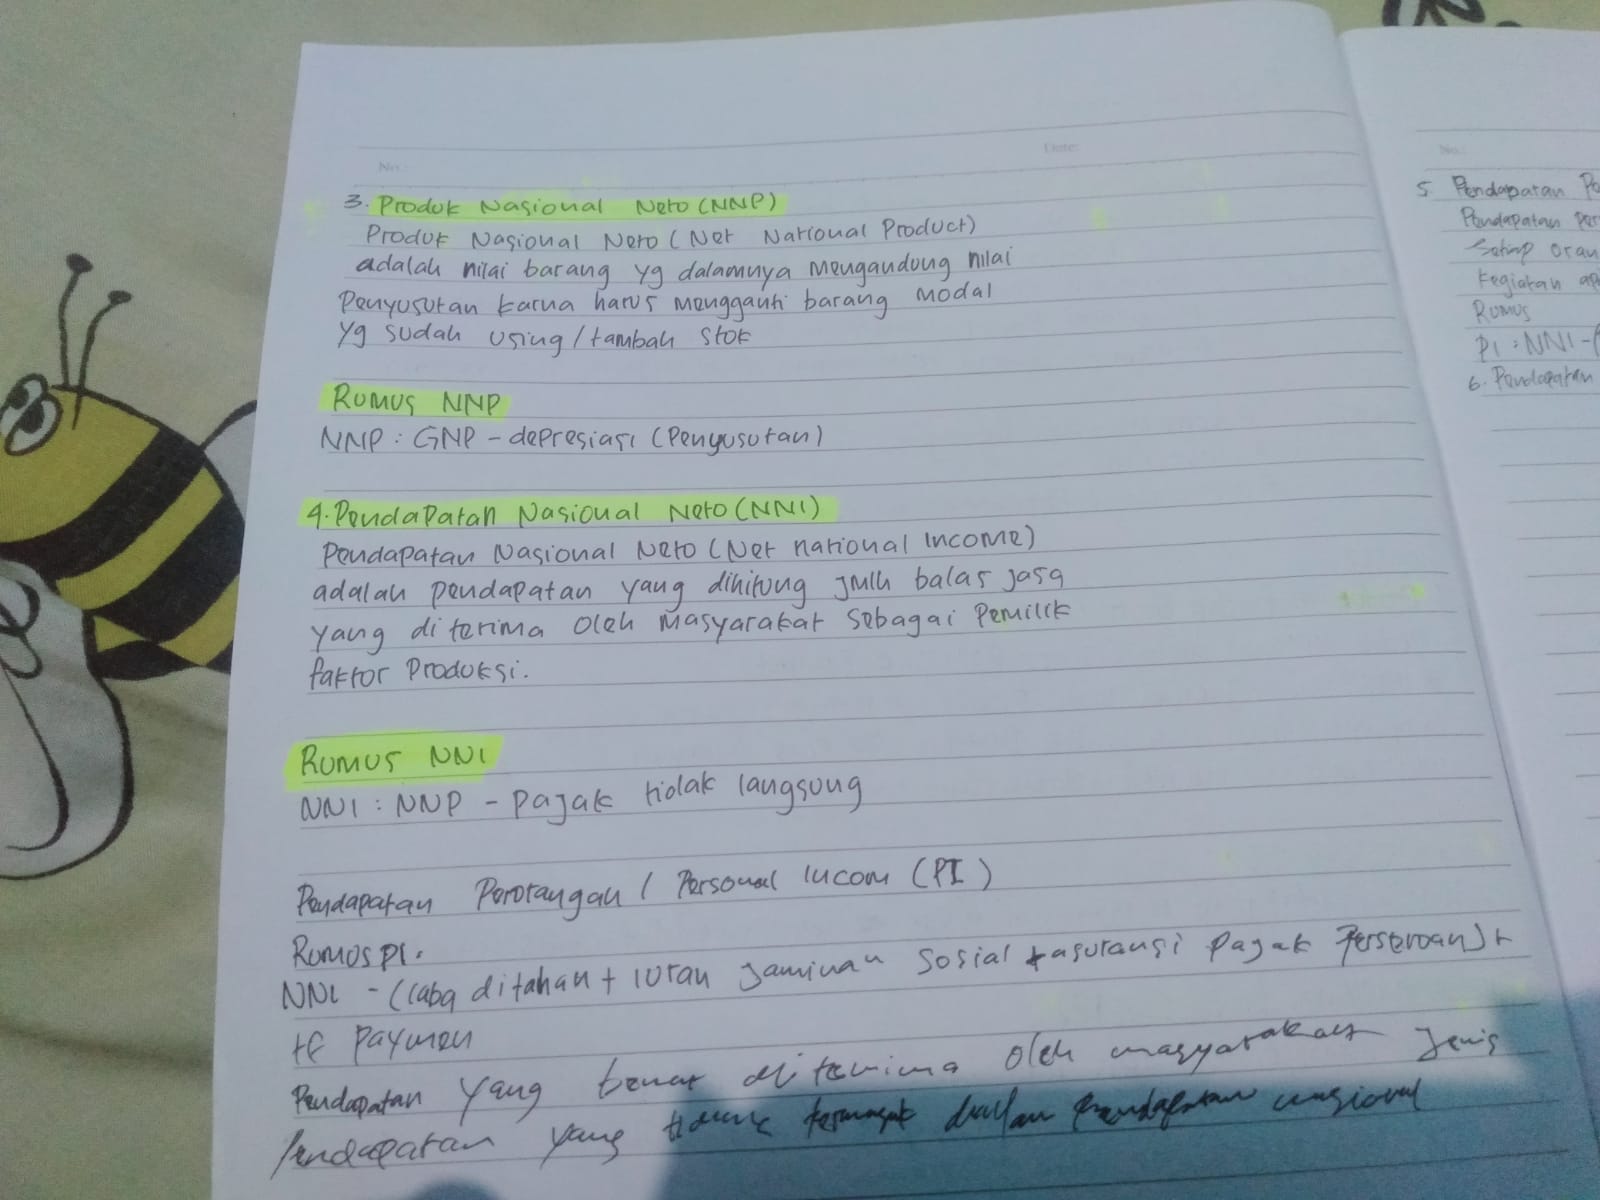 No.:
Date:
3. Produk Nasional Neto (NNP)
Produk Nasional Neto (Net National Product)
adalah nilai barang yg dalamnya mengandung nilai
Penyusutan karna harus mengganti barang modal
yg sudah using/tambah stok
Rumus NNP
NNP : GNP - depresiasi (Penyusutan)
4. Pendapatan Nasional Neto (NNI)
Pendapatan Nasional Neto (Net national Income)
adalah pendapatan yang dihitung jmlh balas jasa
yang diterima oleh masyarakat sebagai Pemilik
faktor Produksi.
Rumus NNI
NNI : NNP - pajak tidak langsung
Pendapatan Perorangan / Personal Incom (PI)
Rumus PI.
NNI - (laba ditahan + iuran jaminan sosial + asuransi pajak Perseroan) +
tf paymen
Pendapatan yang benar diterima oleh masyarakat jenis
Pendapatan yang termasuk dalam Pendapatan nasional
No.:
5. Pendapatan
Pendapatan
Setiap
kegiatan
Rumus
PI : NNI - (
6. Pendapatan